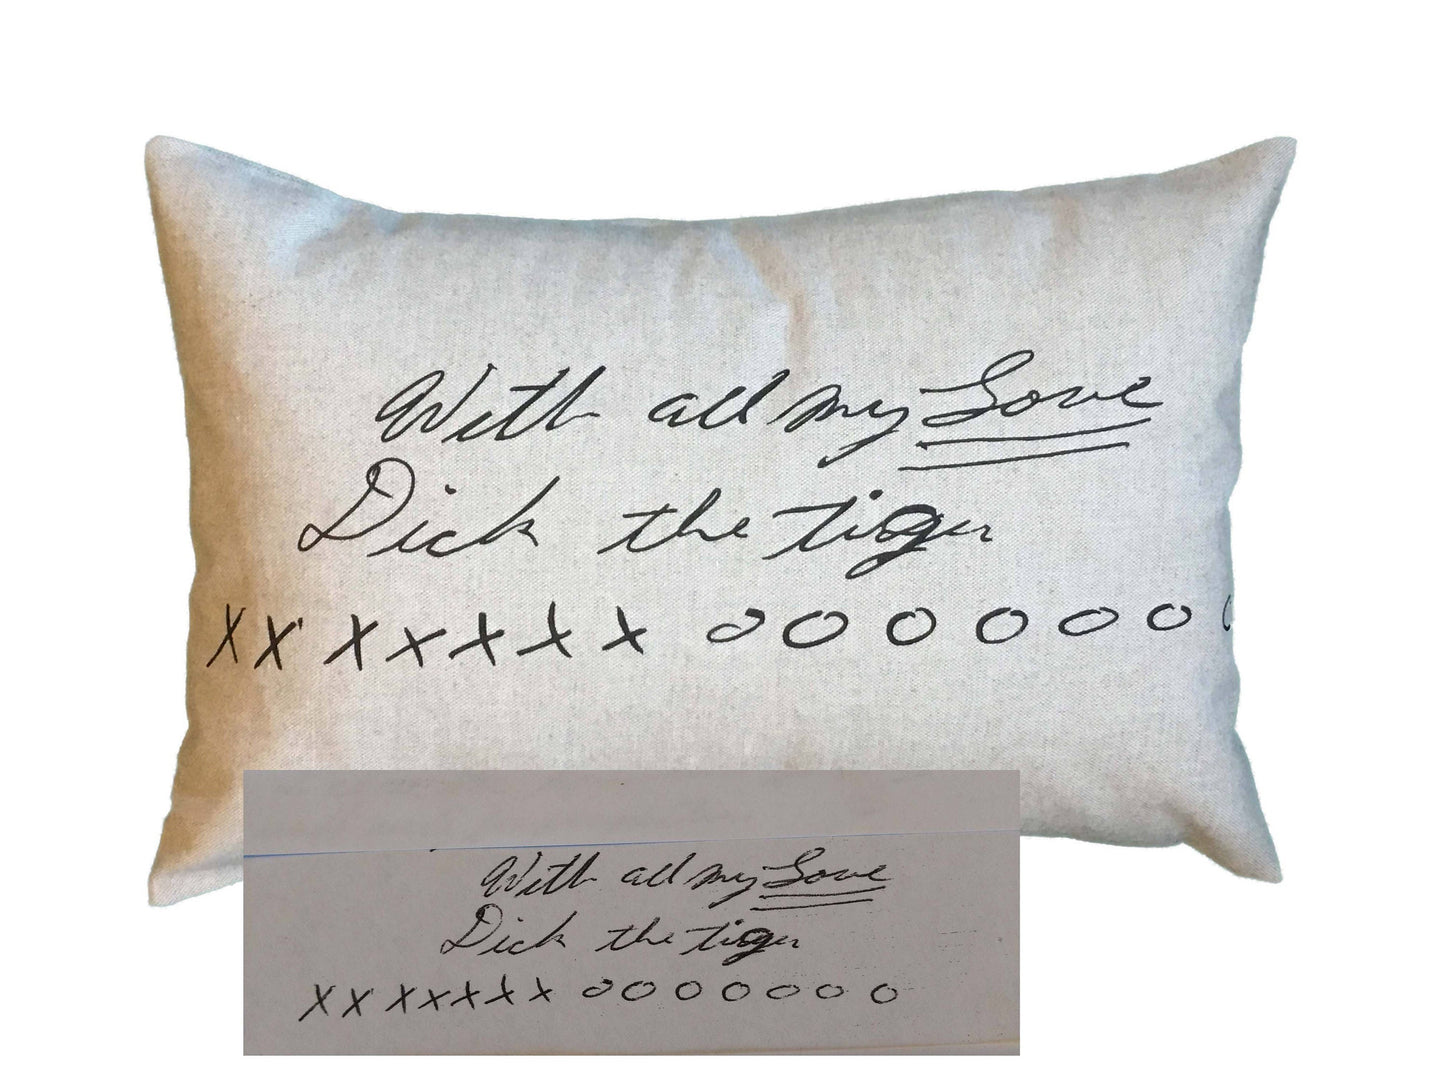 With all my Love
Dick the tiger
XXXXXXX OOOOOOO
With all my Love
Dick the tiger
XXXXXXX OOOOOOO